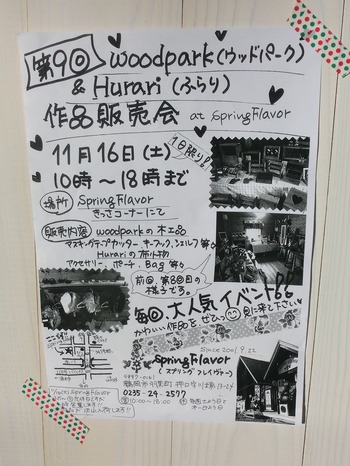 第9回 woodpark(ウッドパーク)
& Hurari (ふらり)
作品販売会 at SpringFlavor
11月16日(土) 1日限り!
10時〜18時まで
場所 SpringFlavor
きっさコーナーにて
販売内容 woodparkの木工品
マスキングテープカッター、キーフック、シェルフ 等々
Hurariの布小物
アクセサリー、ポーチ、Bag 等々
前回、第8回目の
様子です。
毎回 大人気イベント!!
かわいい作品を ぜひっ 見に来て下さい
Since 2001. 9. 22
SpringFlavor
(スプリング フレイヴァー)
0235-29-2577
10:00〜18:00